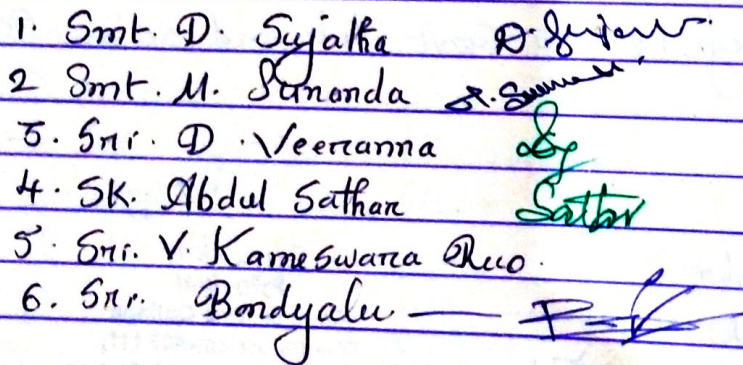 1. Smt. D. Sujatha D. Sujat
2 Smt. M. Sunanda
3. Sri. D. Veeranna
4. SK. Abdul Sathar Sattar
5. Sri. V. Kameswara Rao.
6. Sri. Bondyalu —